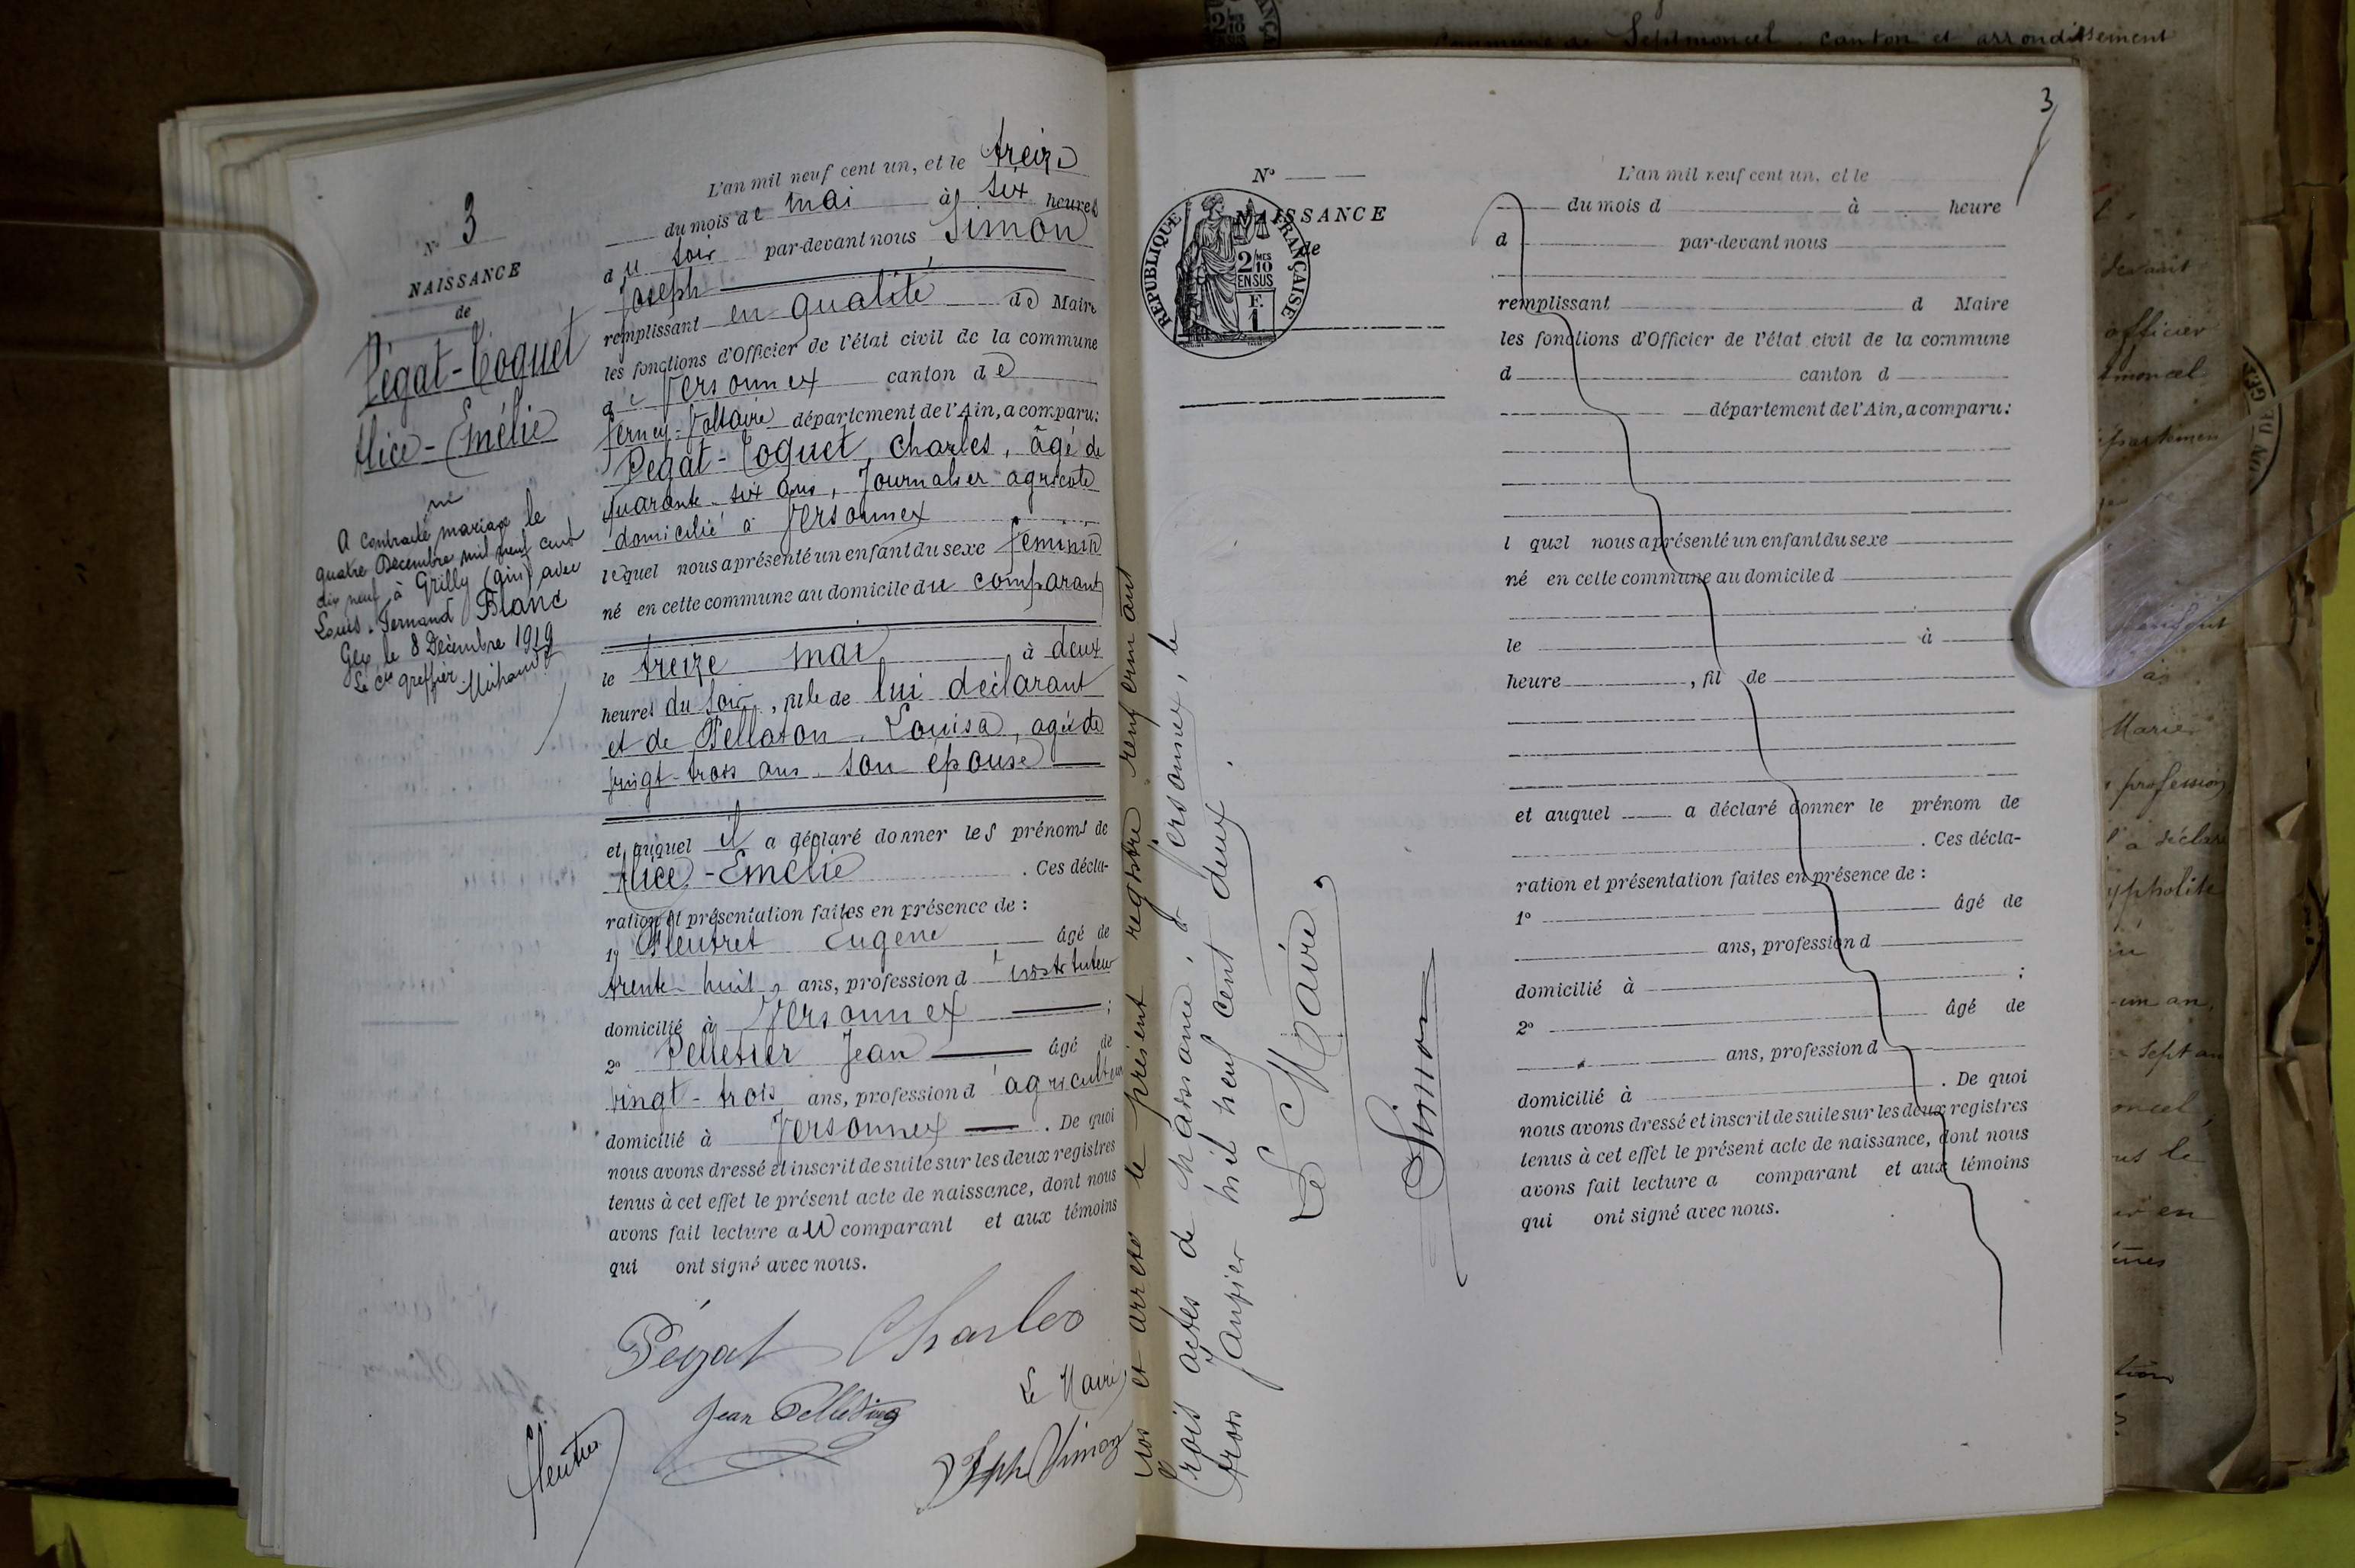 N° 3
NAISSANCE
de
Pégat-Coquet
Alice-Emélie
A contracté mariage le
quatre Décembre mil neuf cent
dix neuf à Grilly (Ain) avec
Louis-Fernand Blanc
Gex, le 8 Décembre 1919
Le Cis greffier.
L'an mil neuf cent un, et le treize
du mois de mai à six heures
du soir par-devant nous Simon
Joseph
remplissant en qualité de Maire
les fonctions d'Officier de l'état civil de la commune
de Versonnex canton de
Ferney-Voltaire département de l'Ain, a comparu:
Pégat-Coquet, Charles, âgé de
quarante-six ans, Journalier agricole
domicilié à Versonnex
lequel nous a présenté un enfant du sexe féminin
né en cette commune au domicile du comparant
le treize mai à deux
heures du soir, fille de lui déclarant
et de Pellaton, Louisa, agée de
vingt-trois ans son épouse
et auquel il a déclaré donner les prénoms de
Alice-Emélie . Ces décla-
ration et présentation faites en présence de :
1° Fleutret Eugène âgé de
trente huit ans, profession d'instituteur
domicilié à Versonnex ;
2° Pelletier Jean âgé de
vingt-trois ans, profession d'agriculteur
domicilié à Versonnex . De quoi
nous avons dressé et inscrit de suite sur les deux registres
tenus à cet effet le présent acte de naissance, dont nous
avons fait lecture au comparant et aux témoins
qui ont signé avec nous.
Pégat Charles
Le Maire,
Jean Pelletier
Fleutret
Jph Simon
et arrêté le présent registre renfermant
trois actes de naissance, à Versonnex, le
trois Janvier mil neuf cent deux.
Le Maire,
Simon
3
N°
NAISSANCE
de
REPUBLIQUE FRANÇAISE
2/10 MES
EN SUS
F.
1
L'an mil neuf cent un, et le
du mois d à heure
d par-devant nous
remplissant d Maire
les fonctions d'Officier de l'état civil de la commune
d canton d
département de l'Ain, a comparu:
l quel nous a présenté un enfant du sexe
né en cette commune au domicile d
le à
heure , fil de
et auquel a déclaré donner le prénom de
. Ces décla-
ration et présentation faites en présence de :
1° âgé de
ans, profession d
domicilié à ;
2° âgé de
ans, profession d
domicilié à . De quoi
nous avons dressé et inscrit de suite sur les deux registres
tenus à cet effet le présent acte de naissance, dont nous
avons fait lecture a comparant et aux témoins
qui ont signé avec nous.
commune de Septmoncel canton et arrondissement
officier
Marie
profession
a déclaré